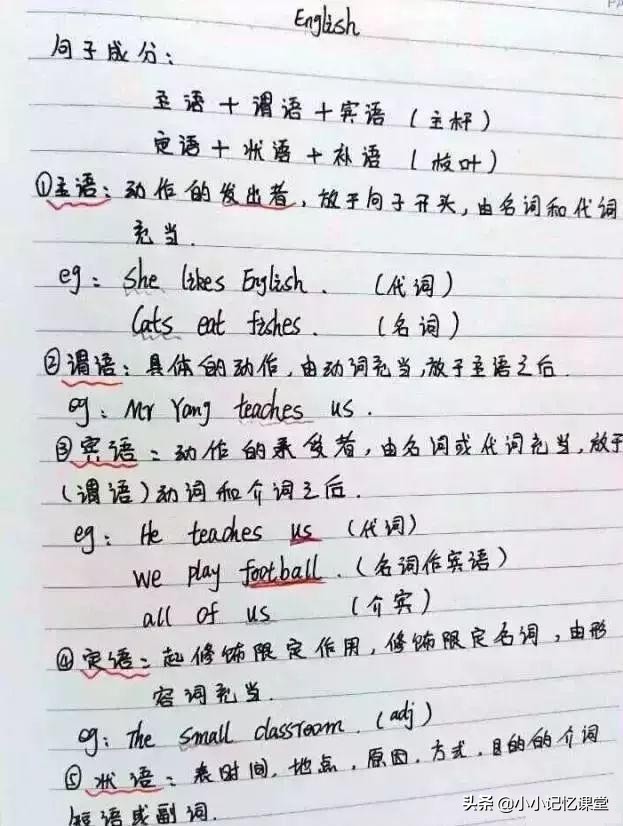 English
句子成分:
主语 + 谓语 + 宾语 (主杆)
定语 + 状语 + 补语 (枝叶)
①主语: 动作的发出者, 放于句子开头, 由名词和代词
充当.
eg: She likes English. (代词)
Cats eat fishes. (名词)
②谓语: 具体的动作, 由动词充当, 放于主语之后.
eg: Mr Yang teaches us.
③宾语: 动作的承受者, 由名词或代词充当, 放于
(谓语)动词和介词之后.
eg: He teaches us (代词)
we play football. (名词作宾语)
all of us (介宾)
④定语: 起修饰限定作用, 修饰限定名词, 由形
容词充当.
eg: The small classroom. (adj)
⑤状语: 表时间, 地点, 原因, 方式, 目的的介词
短语或副词.
头条 @小小记忆课堂